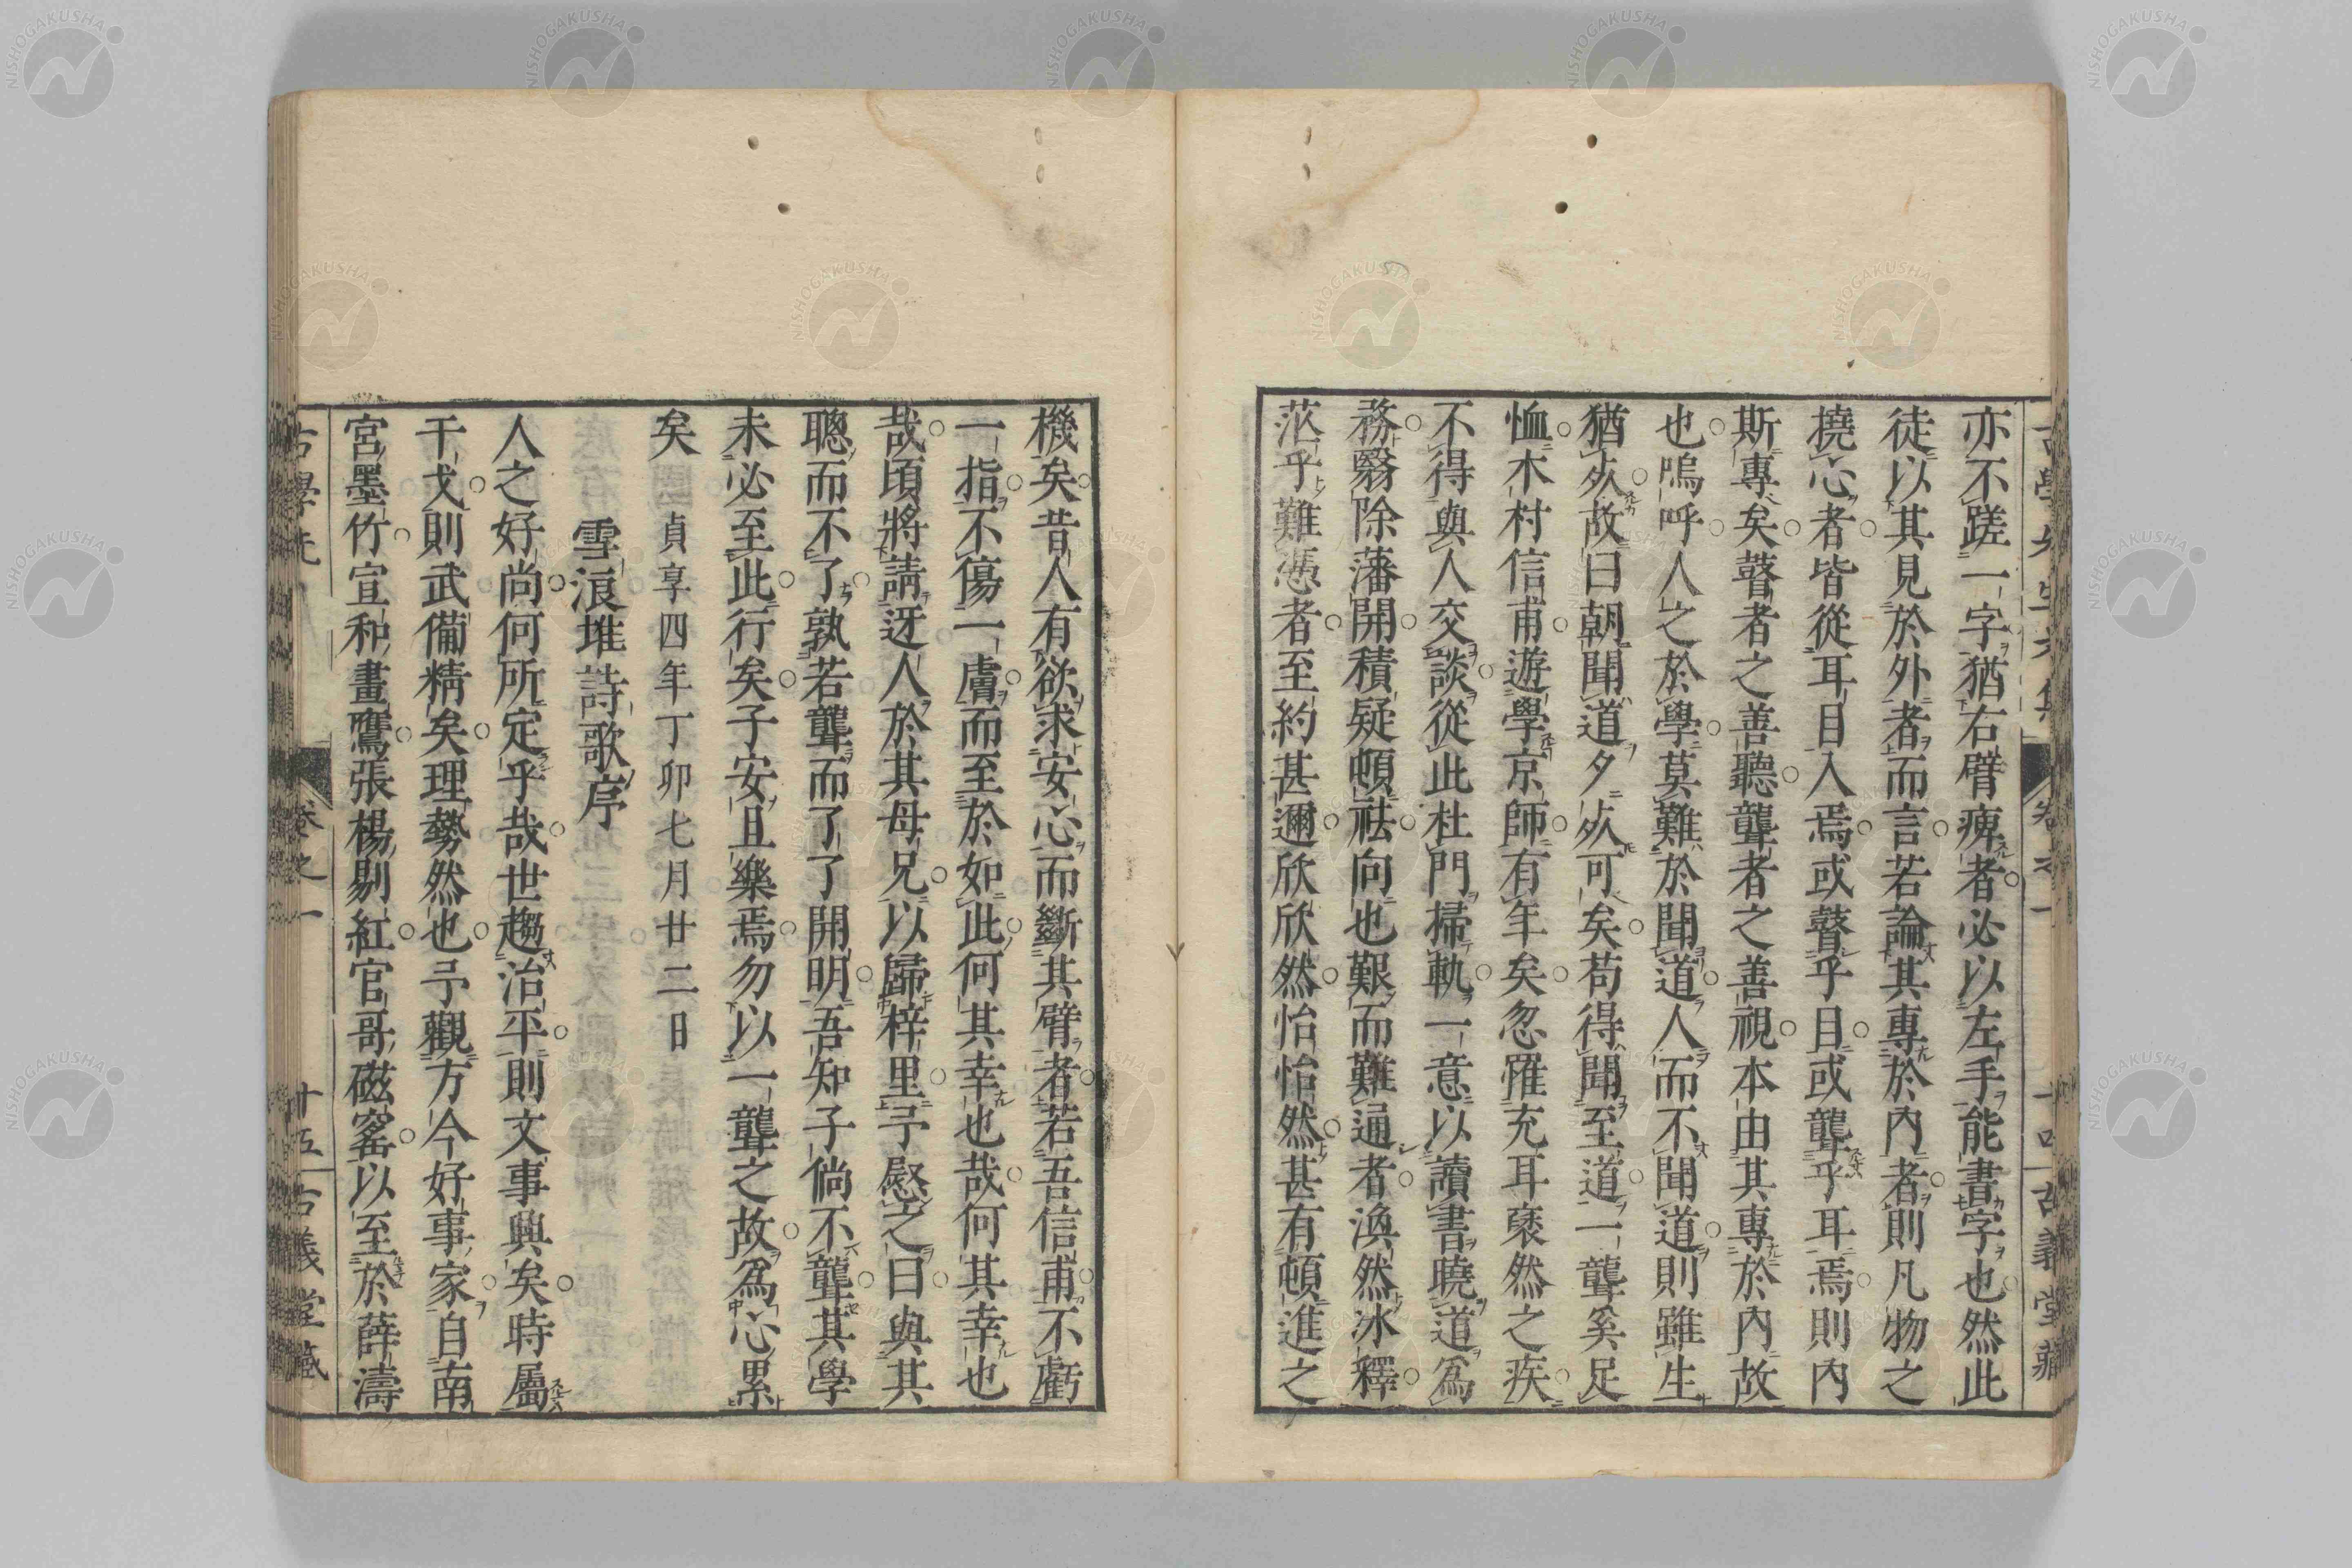 亦不蹉一字猶右臂痺者必以左手能書字也然此
徒以其見於外者而言若論其專於內者則凡物之
撓心者皆從耳目入焉或瞽乎目或聾乎耳焉則內
斯專矣瞽者之善聽聾者之善視本由其專於內故
也嗚呼人之於學莫難於聞道人而不聞道則雖生
猶死故曰朝聞道夕死可矣苟得聞至道一聾奚足
恤木村信甫遊學京師有年矣忽罹充耳褎然之疾
不得與人交談從此杜門掃軌一意以讀書曉道爲
務翳除藩開積疑頓祛向也艱而難通者渙然冰釋
茫乎難憑者至約甚邇欣欣然怡怡然甚有頓進之
機矣昔人有欲求安心而斷其臂者若吾信甫不虧
一指不傷一膚而至於如此何其幸也哉何其幸也
哉頃將請迓人於其母兄以歸梓里予慰之曰與其
聰而不了孰若聾而了了開明吾知子倘不聾其學
未必至此行矣子安且樂焉勿以一聾之故爲心累
矣　貞享四年丁卯七月廿二日
雪浪堆詩歌序
人之好尚何所定乎哉世趨治平則文事興矣時屬
干戈則武備精矣理勢然也予觀方今好事家自南
宮墨竹宣和畫鷹張楊剔紅官哥磁窰以至於薛濤
古學先
卷之一
廿五
古義堂藏
古學先生文集
卷之一
十四
古義堂藏
NISHOGAKUSHA